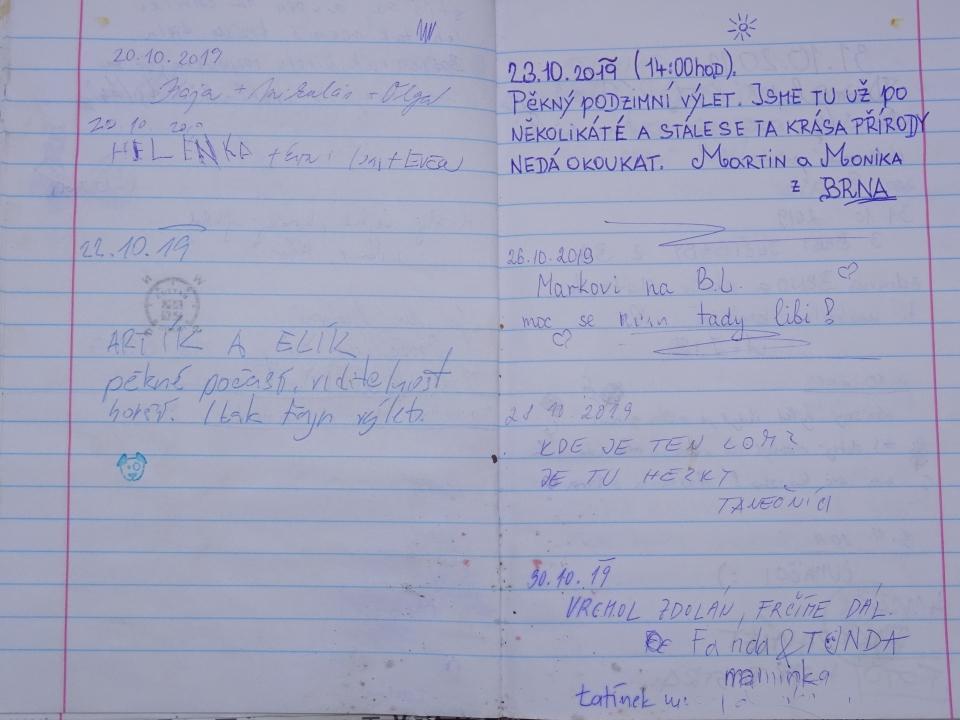 20.10.2019
Kája + Mikuláš + Olga
20 10 2019
HELENKA + Eva +
22.10.19
ARTÍK A ELÍK
pěkné počasí, viditelnost
horší. I tak fajn výlet.
23.10.2019 (14:00hod).
PĚKNÝ PODZIMNÍ VÝLET. JSME TU UŽ PO
NĚKOLIKÁTÉ A STÁLE SE TA KRÁSA PŘÍRODY
NEDÁ OKOUKAT. MARTIN a MONIKA
z BRNA
26.10.2019
Markovi na B.L.
moc se nám tady líbí!
28 10 2019
KDE JE TEN LOM?
JE TU HEZKY
TANEČNÍCI
30.10.19
VRCHOL ZDOLÁN, FRČÍME DÁL.
Fanda & TONDA
maminka
tatínek